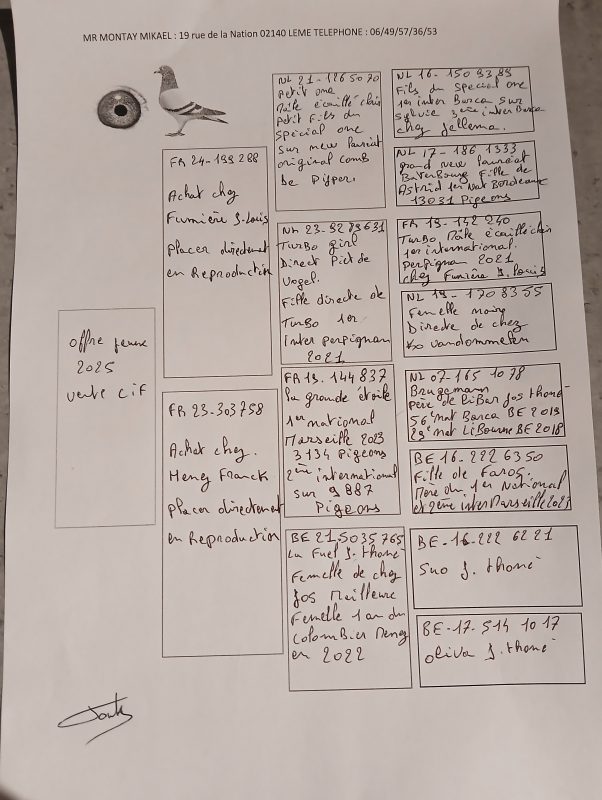 MR MONTAY MIKAEL : 19 rue de la Nation 02140 LEME TELEPHONE : 06/49/57/36/53
offre jeune
2025
vente CIF
FR 24-199 288
Achat chez
Fumière J-Louis
placer directement
en Reproduction
FR 23-303758
Achat chez.
Meney Franck
placer directement
en Reproduction
NL 21-1265070
Petit one
Mâle écaillé clair
petit fils du
Special one
sur new lauriat
original comb
De Pijper.
NL 23-9289631
Turbo girl
Direct Piet de
Vogel.
Fille directe de
Turbo 1er
inter perpignan
2021
FR 19-144 837
la grande étoile
1er national
Marseille 2023
3134 Pigeons
2ème international
sur 9887
Pigeons
BE 21.5035765
La Fuel J. thoné
Femelle de chez
Jos Meilleure
Femelle 1an du
colombier Meney
en 2022
NL 16-150 9389
Fils du Special one
1er inter Barca sur
Sylvie 3ème inter Barca
chez Jellema.
NL 17-186 1333
grand new lauréat
Fille de
Astrid 1er Nat Bordeaux
13031 Pigeons
FR 19-142 240
Turbo Mâle écaillé clair
1er international.
perpignan 2021
chez Fumière J. Louis
NL 19-170 8355
Femelle noire
Directe de chez
ko vandommelen
NL 07-165 1078
Brugemann
Père de LiBar Jos thoné
56è nat Barca BE 2019
29è nat LiBourne BE 2018
BE 16.222 6350
Fille de Faros.
Mère du 1er National
et 2ème inter Marseille 2023
BE-16-222 6221
Suo J. thoné
BE-17-514 1017
oliva J. thoné